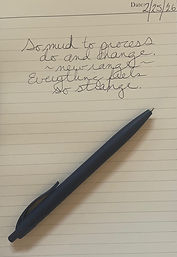 Date: 2/25/26
So much to process
do and change.
~new range~
Everything feels
so strange.